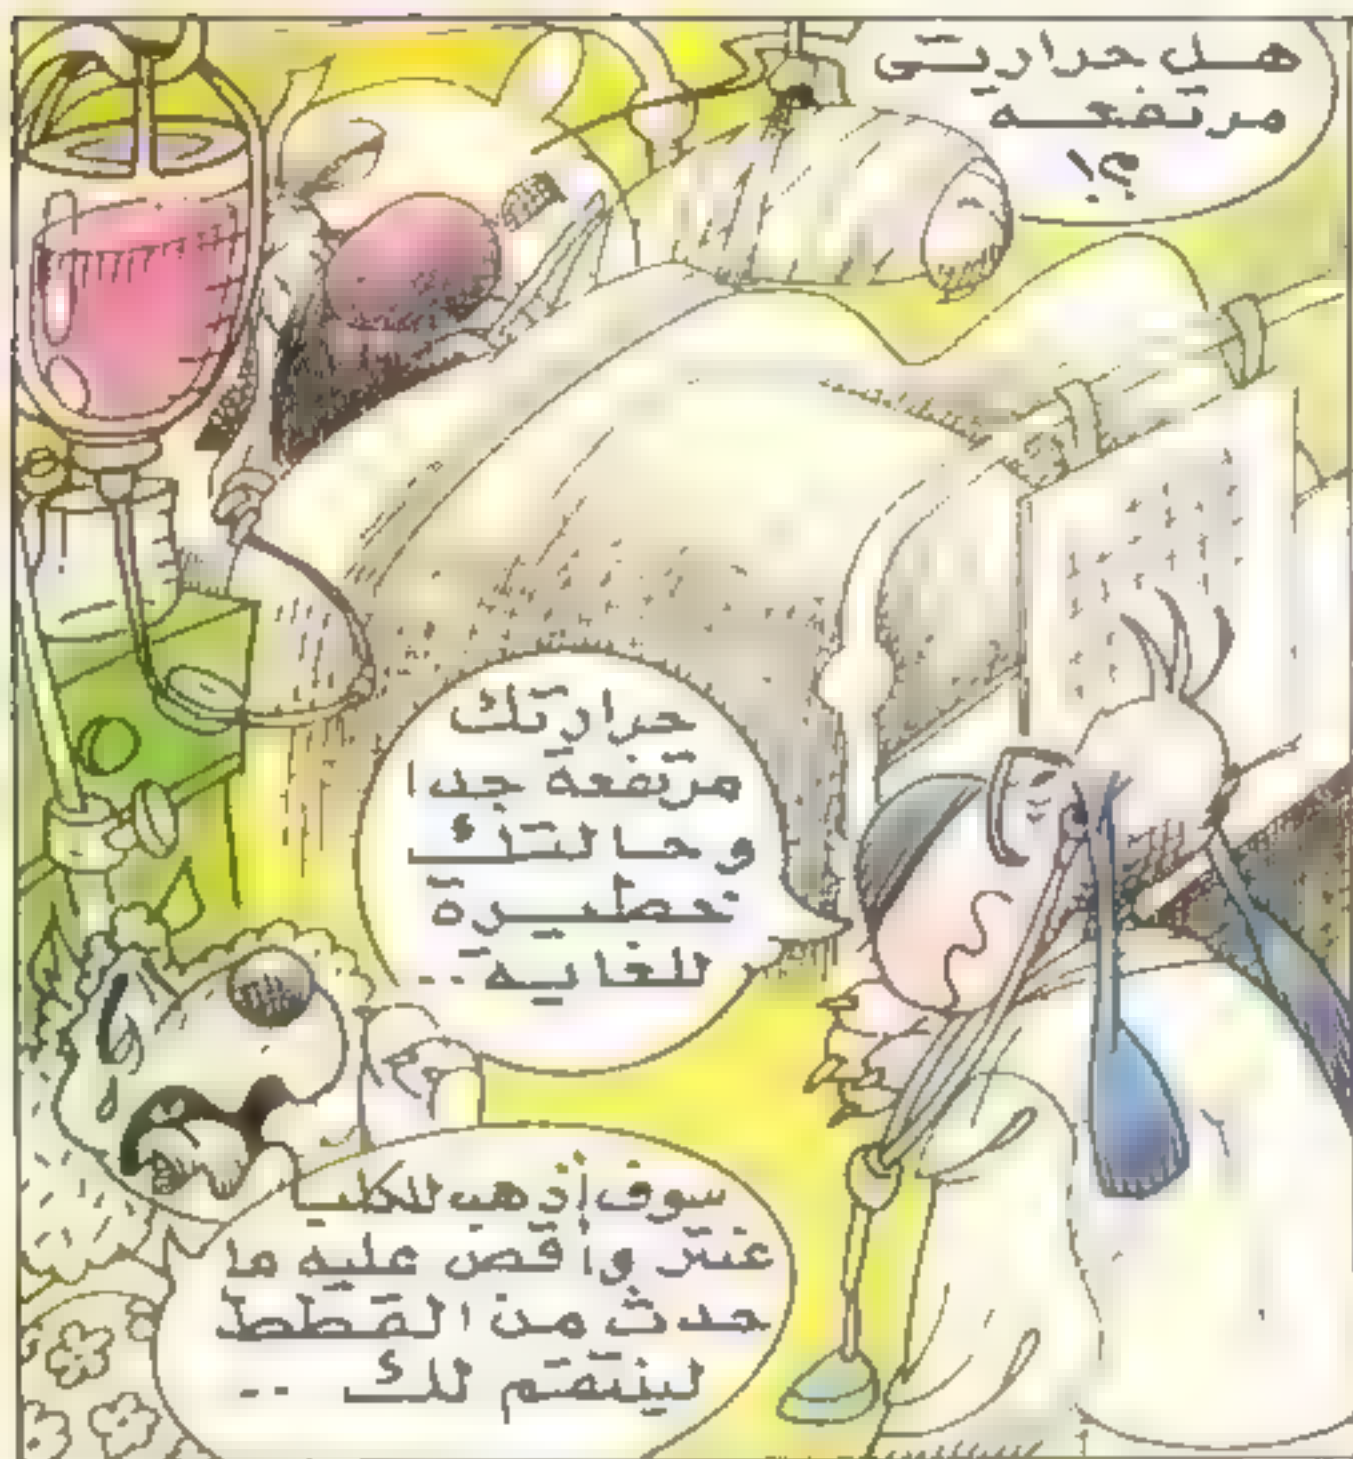 هل حرارتى
مرتفعه
؟!
حرارتك
مرتفعة جدا
وحالتك
خطيرة
للغايه ..
سوف أذهب للكلب
عنتر وأقص عليه ما
حدث من القطط
لينتقم لك ..